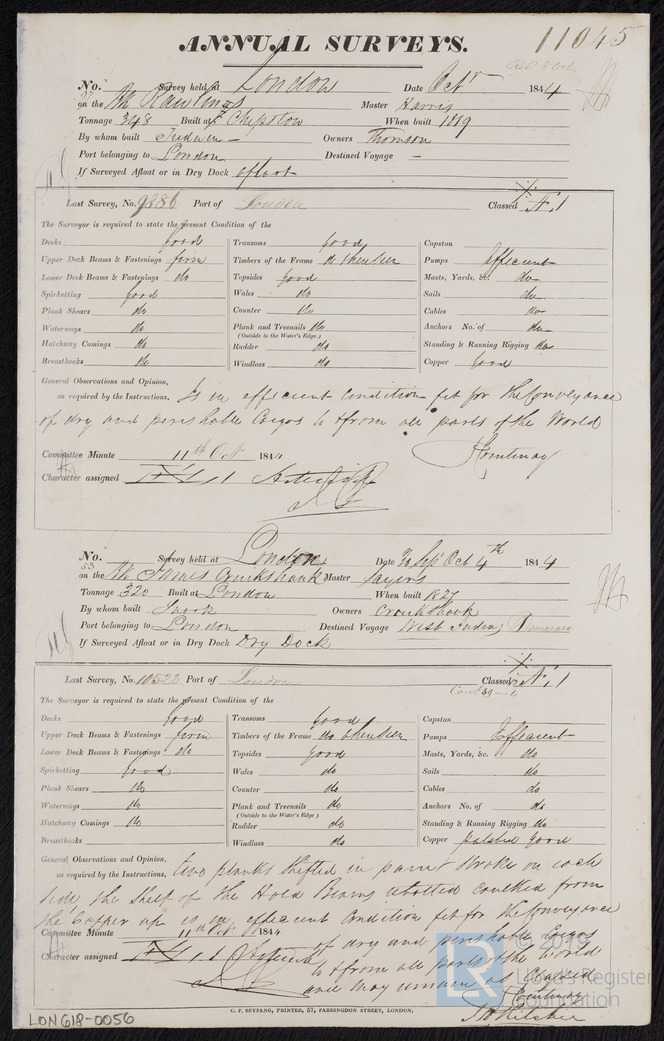 ANNUAL SURVEYS.
11045
No. Survey held at London Date Oct 1844
on the Rawlins Master Harris
Tonnage 348 Built at Chepstow When built 1819
By whom built Owners Thomson
Port belonging to London Destined Voyage —
If Surveyed Afloat or in Dry Dock afloat
Last Survey, No. 9886 Port of London Classed Æ 1
The Surveyor is required to state the present Condition of the
Decks good Transoms good Capstan
Upper Deck Beams & Fastenings firm Timbers of the Frame do Pumps Efficient
Lower Deck Beams & Fastenings do Topsides good Masts, Yards, &c. do
Spirketting good Wales do Sails do
Plank Shears do Counter do Cables do
Waterways do Plank and Treenails do Anchors No. of do
(Outside to the Water's Edge.)
Hatchway Comings do Rudder do Standing & Running Rigging do
Breasthooks do Windlass do Copper Good
General Observations and Opinion,
as required by the Instructions, Is in efficient condition fit for the Conveyance
of dry and perishable Cargos to & from all parts of the World
Committee Minute 11th Oct 1844
Character assigned
No. 53 Survey held at London Date Sep Oct 4th 1844
on the James Cruikshank Master Sayers
Tonnage 320 Built at London When built 1827
By whom built Owners Cruikshank
Port belonging to London Destined Voyage West Indies Demerara
If Surveyed Afloat or in Dry Dock Dry Dock
Last Survey, No. 10523 Port of London Classed Æ 1
The Surveyor is required to state the present Condition of the
Decks Good Transoms good Capstan
Upper Deck Beams & Fastenings firm Timbers of the Frame do Pumps Efficient
Lower Deck Beams & Fastenings do Topsides good Masts, Yards, &c. do
Spirketting good Wales do Sails do
Plank Shears do Counter do Cables do
Waterways do Plank and Treenails do Anchors No. of do
(Outside to the Water's Edge.)
Hatchway Comings do Rudder do Standing & Running Rigging do
Breasthooks Windlass do Copper good
General Observations and Opinion,
as required by the Instructions, two planks shifted in paint stroke on each
side, the Shelf of the Hold Beams rebolted caulked from
the Copper up is in efficient condition fit for the Conveyance
Committee Minute 11th Oct 1844 of dry and perishable Cargos
Character assigned to & from all parts of the World
and may remain as Classed
C. F. SEYFANG, PRINTER, 57, FARRINGDON STREET, LONDON.
LON618-0056
LR
© 2019
Lloyd's Register
Foundation